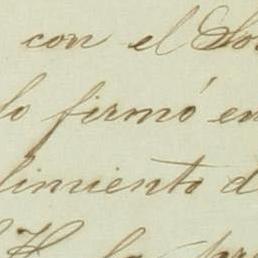 con el
lo firmó en
limiento d